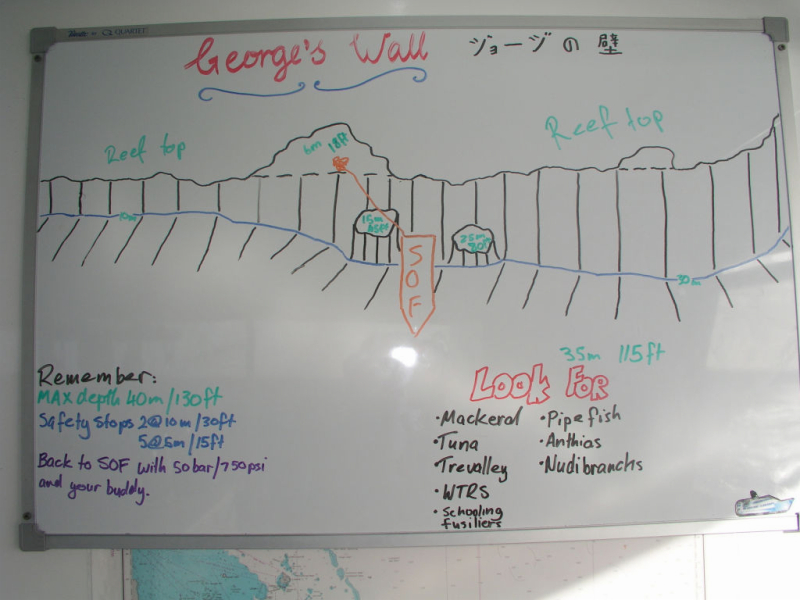 George's Wall ジョージの壁
Reef top
Reef top
6m 18ft
10m
15m
45ft
25m
80ft
SOF
30m
35m 115ft
Remember:
MAX depth 40m/130ft
Safety Stops 2@10m/30ft
5@5m/15ft
Back to SOF with 50bar/750psi
and your buddy.
Look For
·Mackeral
·Tuna
·Trevalley
·WTRS
·Schooling
fusiliers
·Pipefish
·Anthias
·Nudibranchs